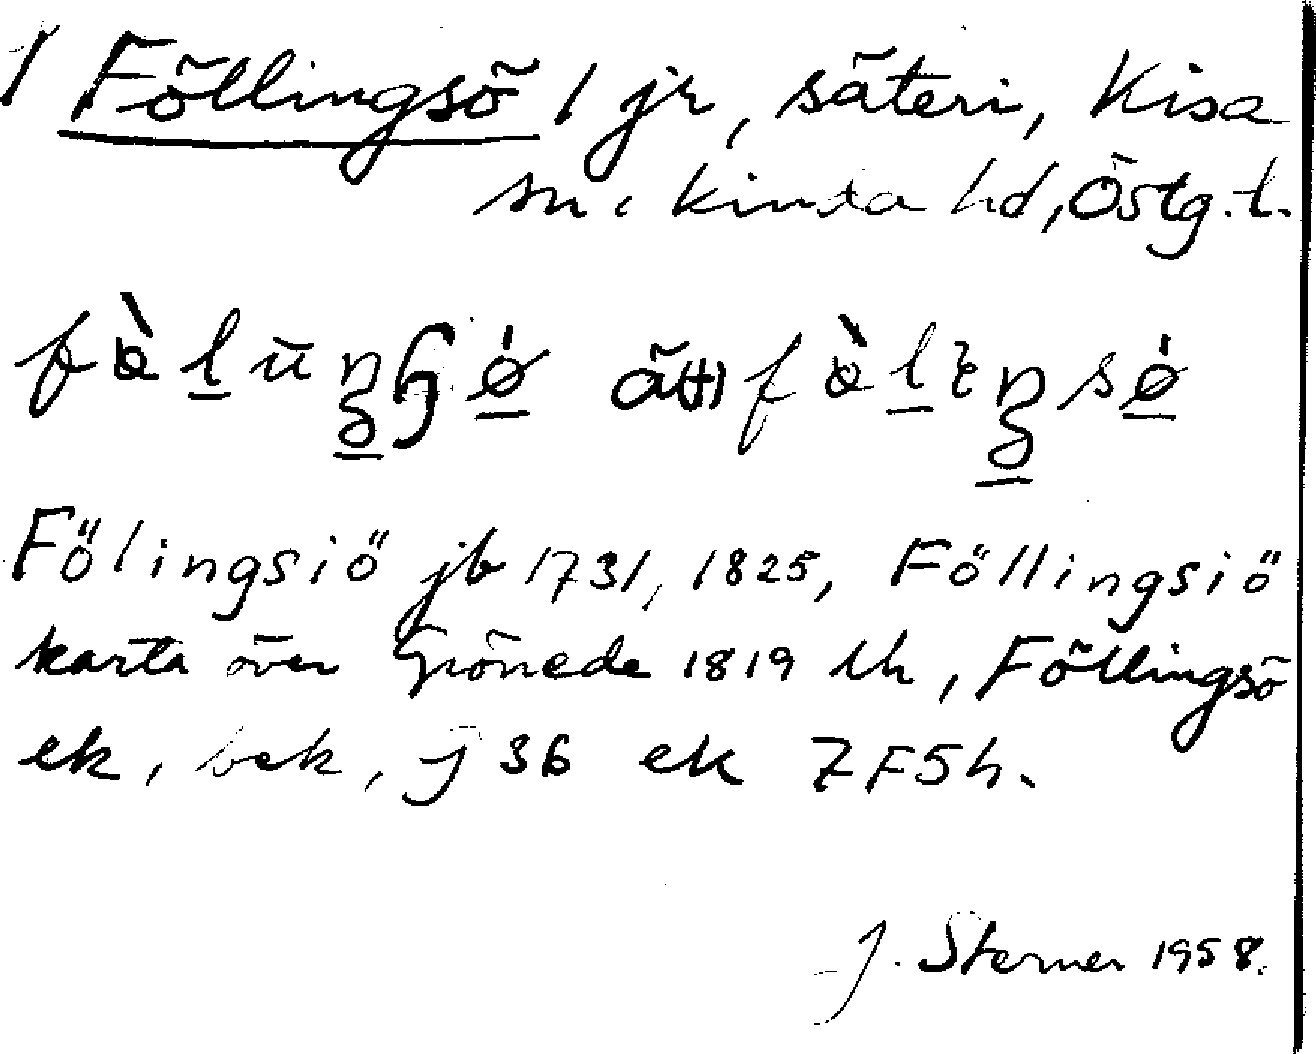 1 Föllingsö 1 jr, säteri, Kisa
sn, Kinda hd, Östg. l.
Fölingsiö jb 1731, 1825, Föllingsiö
karta över Grönede 1819 lh, Föllingsö
ek, bek, J 36 ek 7F5h.
J. Sterner 1958.